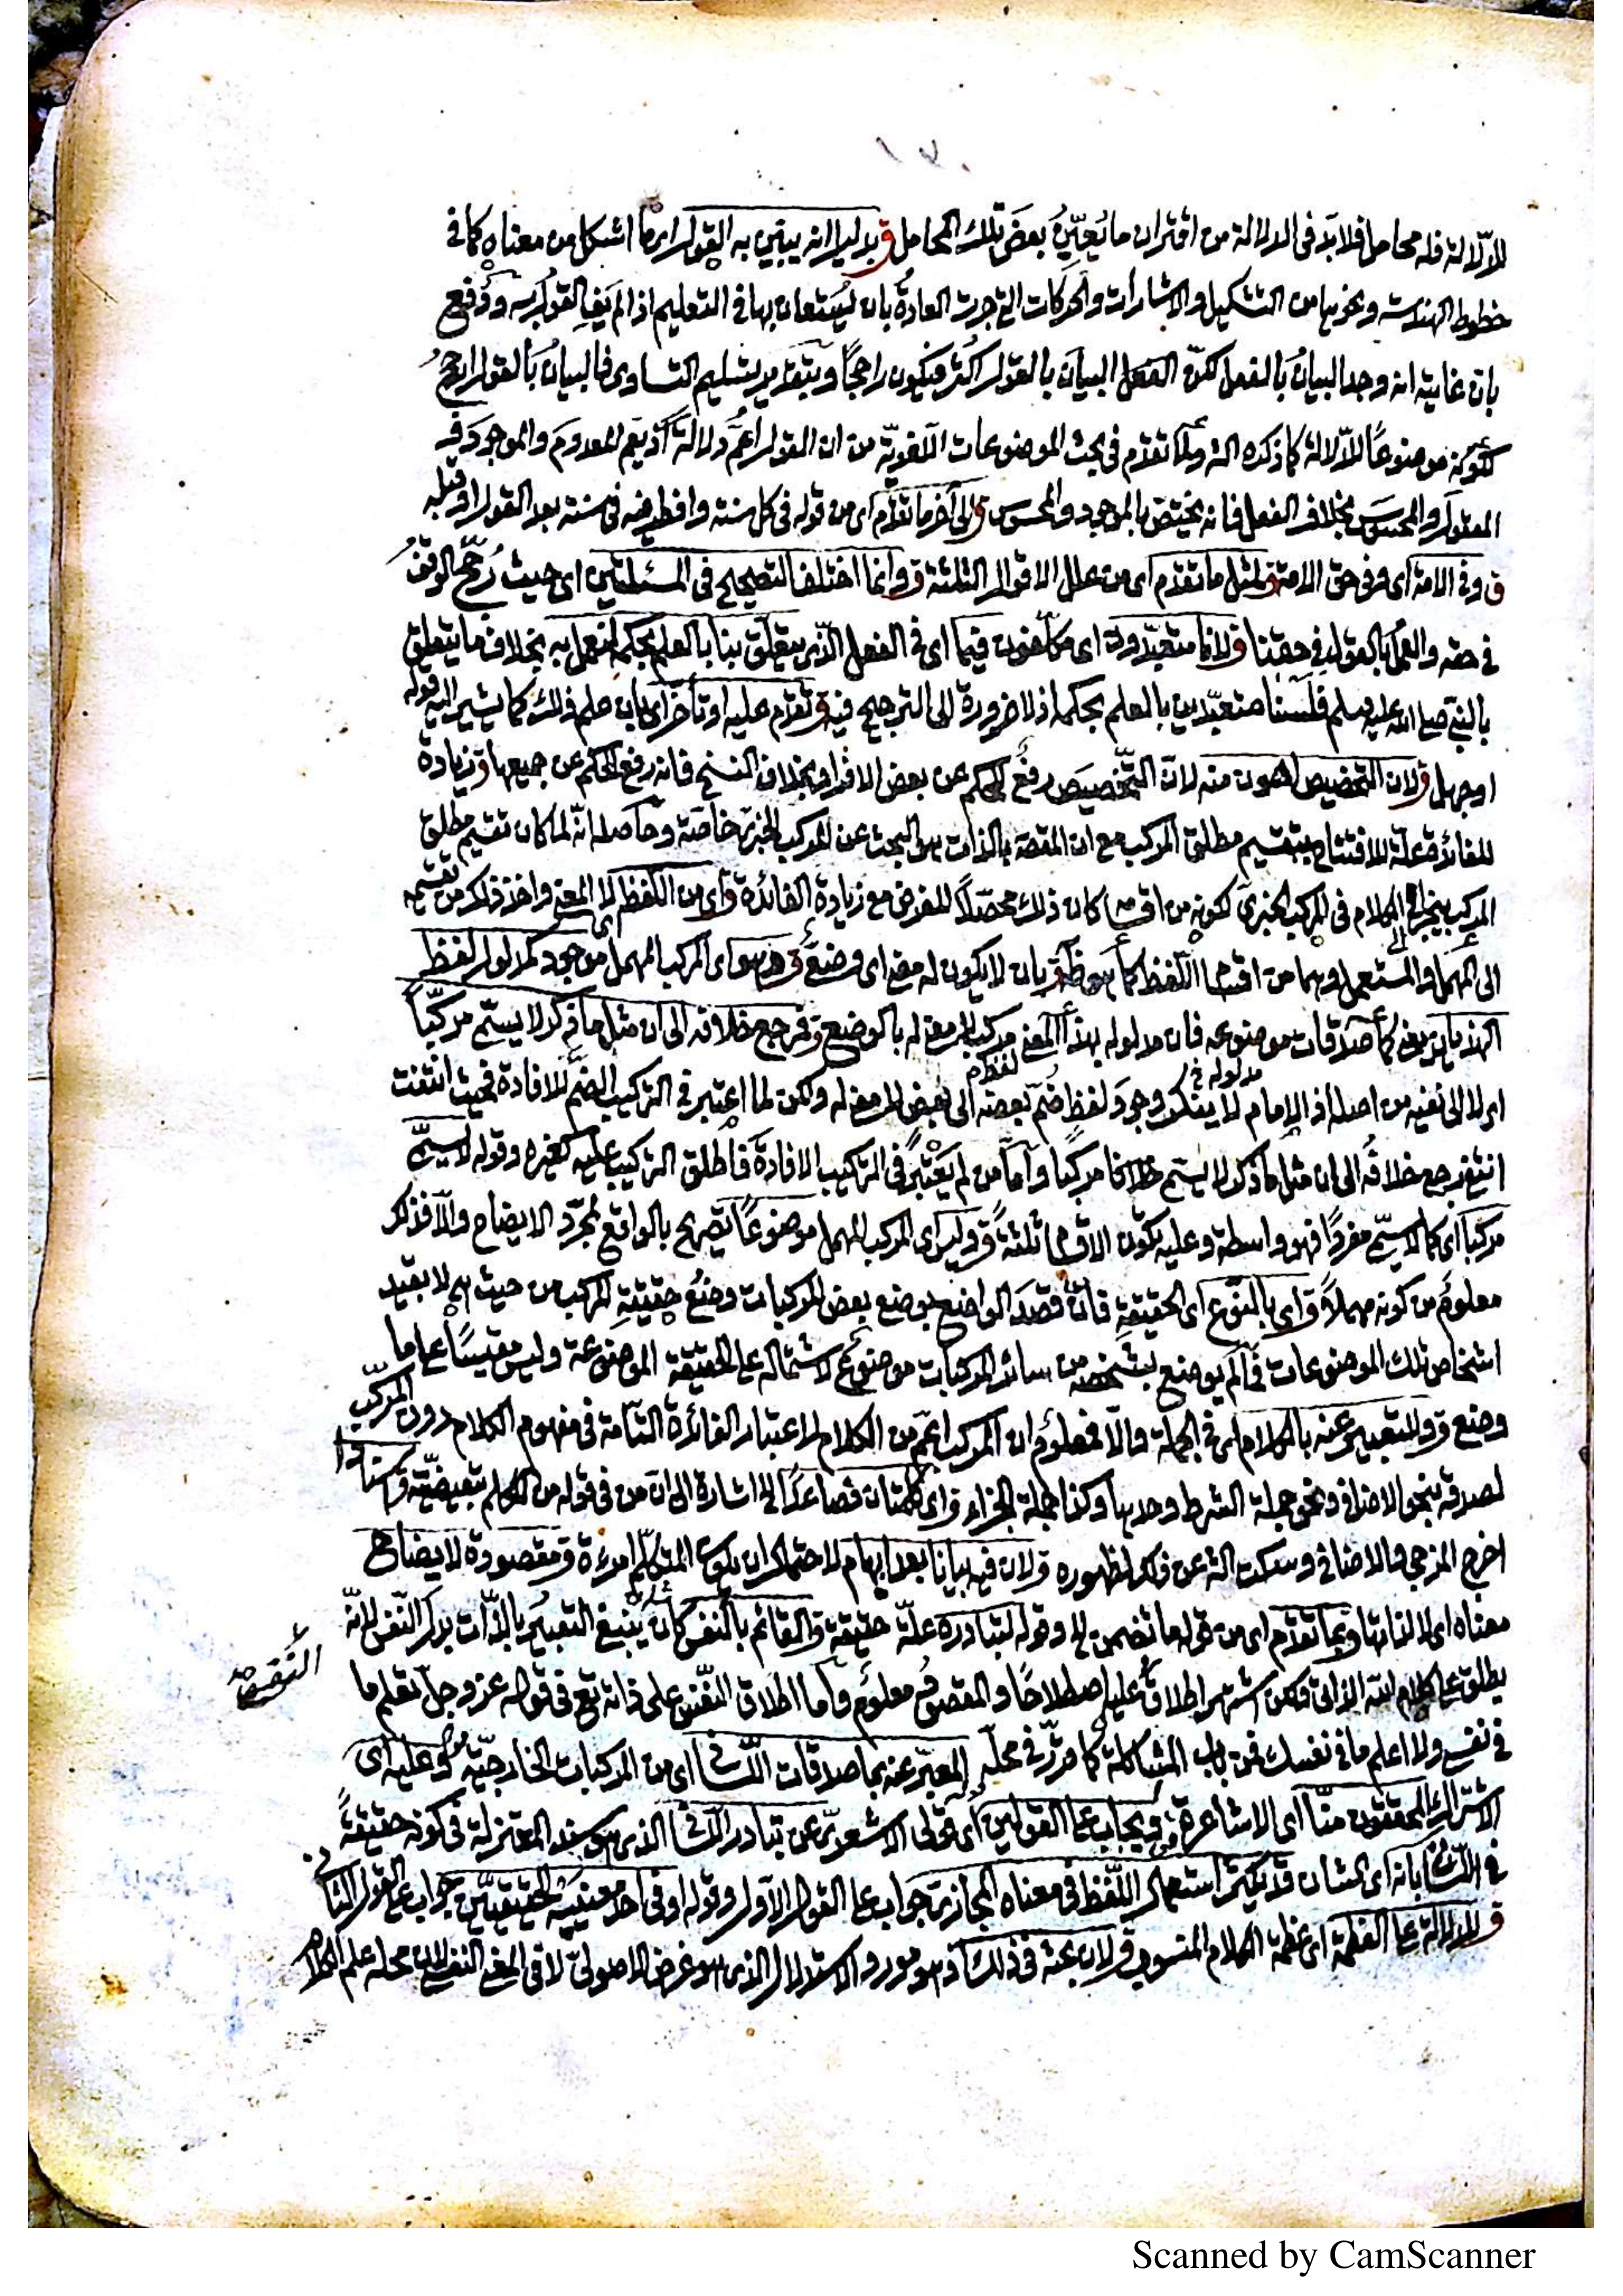 ١٣٠
للدلالة فله محامل فلابد فى الدلالة من اقتران ما يُعَيِّنُ بعضَ تلك المحامل ق بدليل انه يبيّن به القول اى ما اشكل من معناه كما فى
خطوط الهندسة ونحوها من التشكيل والاشارات والحركات التى جرت العادةُ بان يُستعان بها فى التعليم اذا لم يَفِ القول به ودُفع
بان غايته انه وجد البيانُ بالفعل لكنّ البيانَ بالقول اكثر فيكون راجحًا وبتقدير تسليم التساوى فالبيانُ بالقول ارجحُ
لكونه موضوعًا للدلالة كما ذكره الش ولما تقدّم فى بحث الموضوعات اللغويّة من ان القول اعمُّ دلالةً اذ يعم المعدومَ والموجودَ و
المعقولَ والمحسوسَ بخلاف الفعل فانه يختصّ بالموجود والمحسوس ق الى آخر ما تقدّم اى من قوله فى كل سنة وافطر فيه فى سنة بعد القول او قبله
ق وفى الامة اى وفى حق الامة ق لمثل ما تقدم اى من علل الاقوال الثلثة ق وانما اختلف التصحيح فى المسئلتين اى حيث رُجّح الوقفُ
فى حقه والعملُ بالقول فى حقنا ق لانا متعبّدون اى مكلّفون فيما اى فى الفعل الذى يتعلّق بنا بالعلم بحكمه لنعمل به بخلاف ما يتعلق
بالنبى صلى الله عليه وسلم فلسنا متعبّدين بالعلم بحكمه اذ لا ضرورة الى الترجيح فيه ق تقدّم عليه او تأخّر اى بان علم ذلك كما يشير اليه قوله
او جهل ق لان التخصيص اهون منه لانّ التّخصيصَ رفعُ الحكم عن بعض الافراد بخلاف النسخ فانه رفع الحكم عن جميعها ق زيادة
للفائدة علة للافتتاح بتقسيم مطلق المركب مع ان المقصـ بالذات هو البحث عن المركب الخبرى خاصّة وحاصله انّه لما كان تقسيم مطلق
المركب ينجر الى الكلام فى المركب الخبرى لكونه من اقسامه كان ذلك محصّلًا للغرض مع زيادة الفائدة ق اى من اللفظ لا المعنى واخذ ذلك من تقسيمه
الى المهمل والمستعمل وهما من اقسام اللفظ كما هو ظ ق بان لا يكون له معنى اى وضعىٌّ ق وهو اى المركب المهمل موجود كمدلول لفظ
الهذيان يعنى كما صدقات موضوعه فان مدلوله بهذا المعنى مركب لا معنى له بالوضع ق فمرجع خلافه الى ان مثل ما ذكر لا يسمّى مركّبًا
اى لا الى نفيه من اصله اذ الامام لا ينكر وجودَ لفظ ضُمّ بعضه الى بعض لا معنى له ولكن لما اعتبر فى التركيب الضمَّ للافادة فحيث انتفت
انتفى فرجع خلافُه الى ان مثل ما ذكر لا يسمى كلاما مركبا وامّا من لم يَعْتَبِرْ فى التركيب الافادةَ فاطلق التركيب عليه كغيره وقوله لا يسمّى
مركبا اى كما لا يسمّى مفردًا فهو واسطة وعليه تكون الاقسام ثلثةً ق وليس اى المركب المهمل موضوعًا تصريح بالواقع لمجرّد الايضاح والّا فذلك
معلومٌ من كونه مهملًا ق اى بالنّوع اى الحقيقةِ فانّ قصدَ الواضع بوضع بعض المركبات وضعُ حقيقةِ المركب من حيث هى لا بقيد
اشخاص تلك الموضوعات فما لم يوضع بشخصه من سائر المركبات موضوعٌ لاشتماله على الحقيقة الموضوعة وليس مقيسًا على ما
وضع ق والتعبير عنه بالكلام اى فى الجملة والّا فمعلومٌ ان المركب اعمّ من الكلام لاعتبار الفائدة التّامّة فى مفهوم الكلام دون المركّب
لصدقه بنحو الاضافى ونحو جملة الشرط وحدها وكذا جملة الجزاء ق اى كلمتان فصاعدًا الخ اشارة الى انّ من فى قوله من الكلم تبعيضيّة ق اسنادا
اخرج المزجى والاضافى وسكت الش عن ذلك لظهوره ق لان فيه بيانا بعد ابهام لاحتمال ان يكون المتكلّم امرءة ق مقصودة لايضاح
معناه اى لا لذاتها ق بما تقدّم اى من قوله ما تضمن الخ وقوله لتبادره علّة حقيقة ق القائم بالنفس كان ينبغى التعبيرُ بالذّات بدل النّفس لانّه
يطلق على كلام الله الازلى ولكن اشتهر اطلاقُه عليه اصطلاحًا والمقصودُ معلومٌ وامّا اطلاق النّفس على ذاته تع فى قوله عزّ وجلّ تعلم ما
النفس صـ
فى نفسى ولا اعلم ما فى نفسك فمن باب المشاكلة كما قرّر فى محلّه المعبّر عنه بما صدقات اللّسانى اى من المركبات الخارجيّة ق وعليه اى
الاشتراك المحققون منّا اى الاشاعرة ق ويجاب على القولين اى قولى الاشعرىّ عن تبادر اللّسانى الذى هو سند المعتزلة فى كونه حقيقةً
فى اللّسانى بانه اى الشان قد يكثر استعمال اللّفظ فى معناه المجازىّ جواب على القول الاوّل وقوله او فى احد معنييه الحقيقيّين جواب على القول الثانى
ق للدلالة على العظمة اى عظمة الكلام المنسوب ق لان بحثه فى ذلك اذ هو مورد الاستدلال الذى هو غرض الاصولىّ لا فى المعنى النفسى لان محله علم الكلام
Scanned by CamScanner